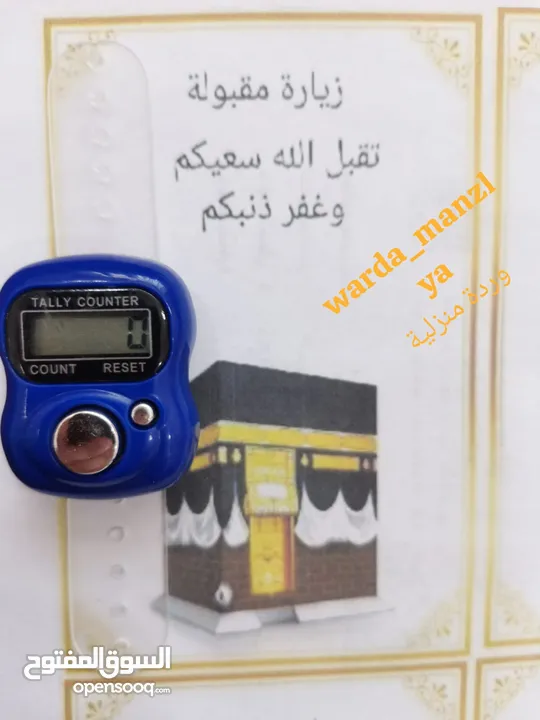 زيارة مقبولة
تقبل الله سعيكم
وغفر ذنبكم
warda_manzl
ya
وردة منزلية
TALLY COUNTER
0
COUNT RESET
السوق المفتوح
opensooq.com